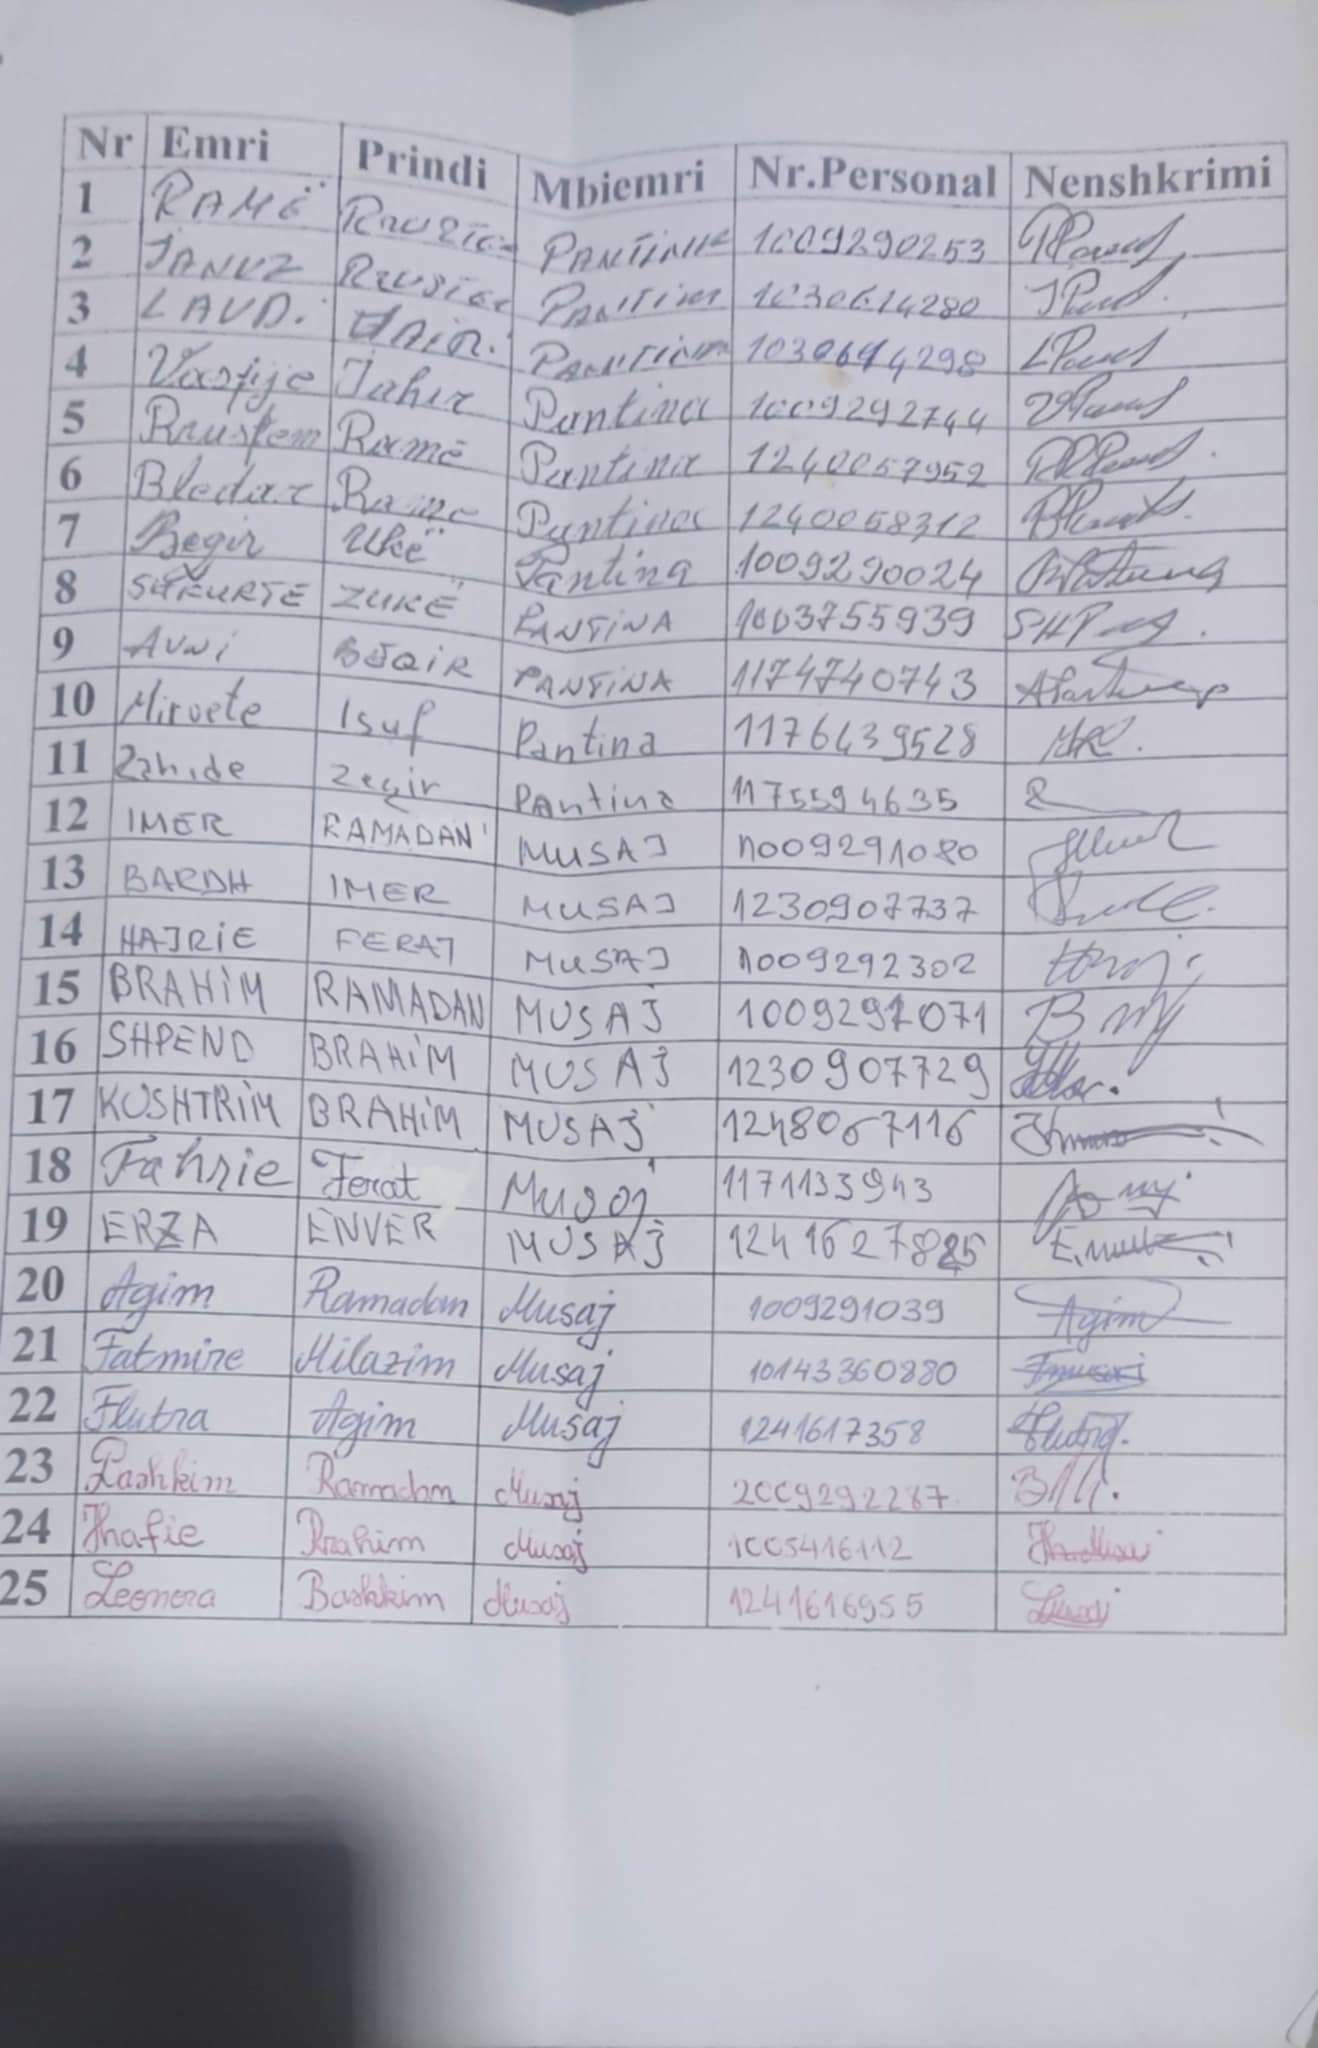 Nr Emri Prindi Mbiemri Nr.Personal Nenshkrimi
1 RAMË PANTINA 1009290253
2 JANUZ PANTINA 1030614280
3 PANTINA 1030614298
4 Vasfije Jahir Pantina 1009292744
5 Rrustem Ramë Pantina 1240057952
6 Bledar Rame Pantina 1240058312
7 Beqir Ukë Pantina 1009290024
8 SHKURTE ZUKË PANTINA 1003755939
9 AVNI BEQIR PANTINA 1174740743
10 Mirvete Isuf Pantina 1176439528
11 Zahide Zeqir Pantina 1175594635
12 IMER RAMADAN MUSAJ 1009291080
13 BARDH IMER MUSAJ 1230907737
14 HAJRIE FERAT MUSAJ 1009292302
15 BRAHiM RAMADAN MUSAJ 1009291071
16 SHPEND BRAHiM MUSAJ 1230907729
17 KUSHTRiM BRAHiM MUSAJ 1248067116
18 Fahrie Ferat Musaj 1171133943
19 ERZA ENVER MUSAJ
20 Agim Ramadan Musaj 1009291039 Agim
21 Fatmire Milazim Musaj 10143360880
22 Flutra Agim Musaj 1241617358
23 Bashkim Ramadan Musaj 2009292287
24 Hafie Musaj 1005416112
25 Leonora Bashkim Musaj 1241616955